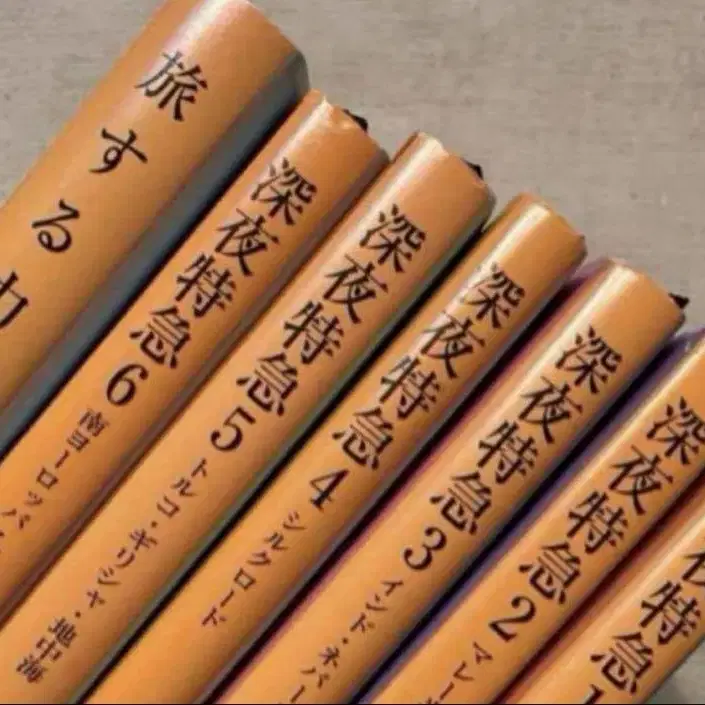 旅する力
深夜特急6 南ヨーロッパ・
深夜特急5 トルコ・ギリシャ・地中海
深夜特急4 シルクロード
深夜特急3 インド・ネパー
深夜特急2 マレー
夜特急1